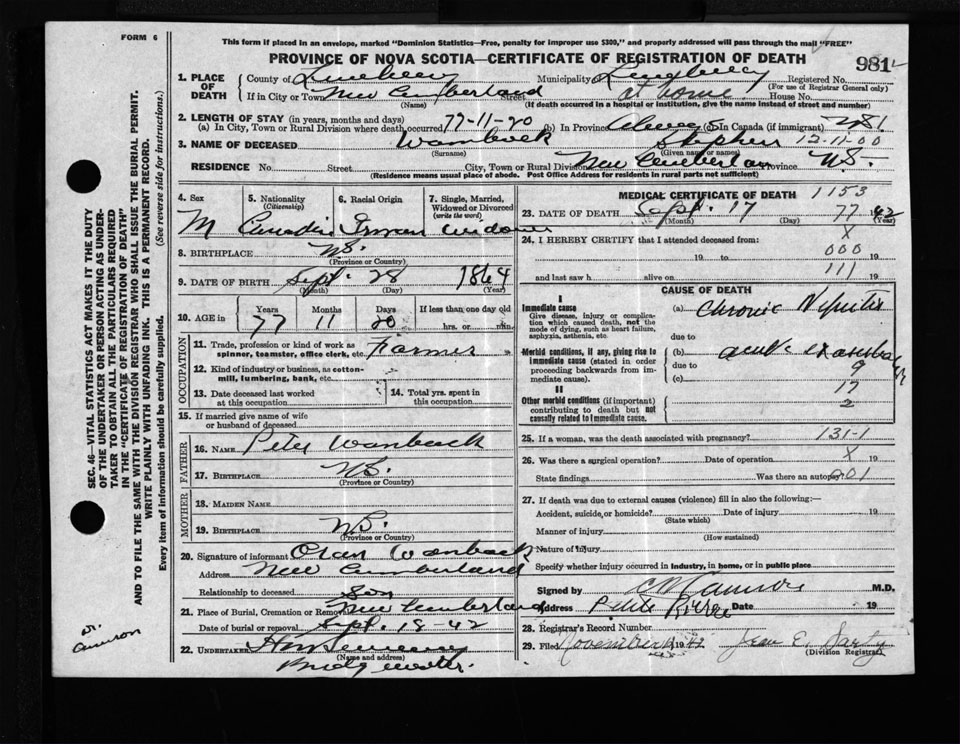 FORM 6
This form if placed in an envelope, marked "Dominion Statistics—Free, penalty for improper use $300," and properly addressed will pass through the mail "FREE"
PROVINCE OF NOVA SCOTIA—CERTIFICATE OF REGISTRATION OF DEATH
981
1. PLACE OF DEATH
County of Municipality Registered No.
(For use of Registrar General only)
If in City or Town New Cumberland Street at home House No.
(Name) (If death occurred in a hospital or institution, give the name instead of street and number)
2. LENGTH OF STAY (in years, months and days)
(a) In City, Town or Rural Division where death occurred 77-11-20 (b) In Province always (c) In Canada (if immigrant)
3. NAME OF DECEASED Stephen 12-11-00
(Surname) (Given name or names)
RESIDENCE No. Street City, Town or Rural Division New Cumberland Province N.S.
(Residence means usual place of abode. Post Office Address for residents in rural parts not sufficient)
4. Sex
M
5. Nationality (Citizenship)
Canadian
6. Racial Origin
7. Single, Married, Widowed or Divorced (write the word)
widower
8. BIRTHPLACE N.S.
(Province or Country)
9. DATE OF BIRTH Sept. 28 1864
(Month) (Day) (Year)
10. AGE in Years Months Days If less than one day old
77 11 20 hrs. or min.
OCCUPATION
11. Trade, profession or kind of work as spinner, teamster, office clerk, etc. Farmer
12. Kind of industry or business, as cotton-mill, lumbering, bank, etc.
13. Date deceased last worked at this occupation
14. Total yrs. spent in this occupation
15. If married give name of wife or husband of deceased
FATHER
16. NAME Peter Wanback
17. BIRTHPLACE N.S.
(Province or Country)
MOTHER
18. MAIDEN NAME
19. BIRTHPLACE N.S.
(Province or Country)
20. Signature of informant Wanback
Address New Cumberland
Relationship to deceased Son
21. Place of Burial, Cremation or Removal New Cumberland
Date of burial or removal Sept. 18-42
22. UNDERTAKER
(Name and address)
MEDICAL CERTIFICATE OF DEATH 1153
23. DATE OF DEATH Sept. 17 77 42
(Month) (Day) (Year)
24. I HEREBY CERTIFY that I attended deceased from: X
19 to 000 19
and last saw h alive on 111 19
CAUSE OF DEATH
I
Immediate cause
Give disease, injury or complication which caused death, not the mode of dying, such as heart failure, asphyxia, asthenia, etc.
(a) Chronic
due to
Morbid conditions, if any, giving rise to immediate cause (stated in order proceeding backwards from immediate cause).
(b) acute
due to 9
(c)
II
Other morbid conditions (if important) contributing to death but not causally related to immediate cause.
17
2
25. If a woman, was the death associated with pregnancy? 131-1
26. Was there a surgical operation? Date of operation X 19
State findings Was there an autopsy? 201
27. If death was due to external causes (violence) fill in also the following:—
Accident, suicide, or homicide? Date of injury 19
(State which)
Manner of injury
(How sustained)
Nature of injury
Specify whether injury occurred in industry, in home, or in public place
Signed by M.D.
Address Date 19
28. Registrar's Record Number
29. Filed November 1942 Jean E. Sarty
(Division Registrar)
SEC. 46—VITAL STATISTICS ACT MAKES IT THE DUTY
OF THE UNDERTAKER OR PERSON ACTING AS UNDER-
TAKER TO OBTAIN ALL THE PARTICULARS REQUIRED
IN THE "CERTIFICATE OF REGISTRATION OF DEATH"
AND TO FILE THE SAME WITH THE DIVISION REGISTRAR WHO SHALL ISSUE THE BURIAL PERMIT.
WRITE PLAINLY WITH UNFADING INK. THIS IS A PERMANENT RECORD.
Every item of information should be carefully supplied. (See reverse side for instructions.)
Dr.